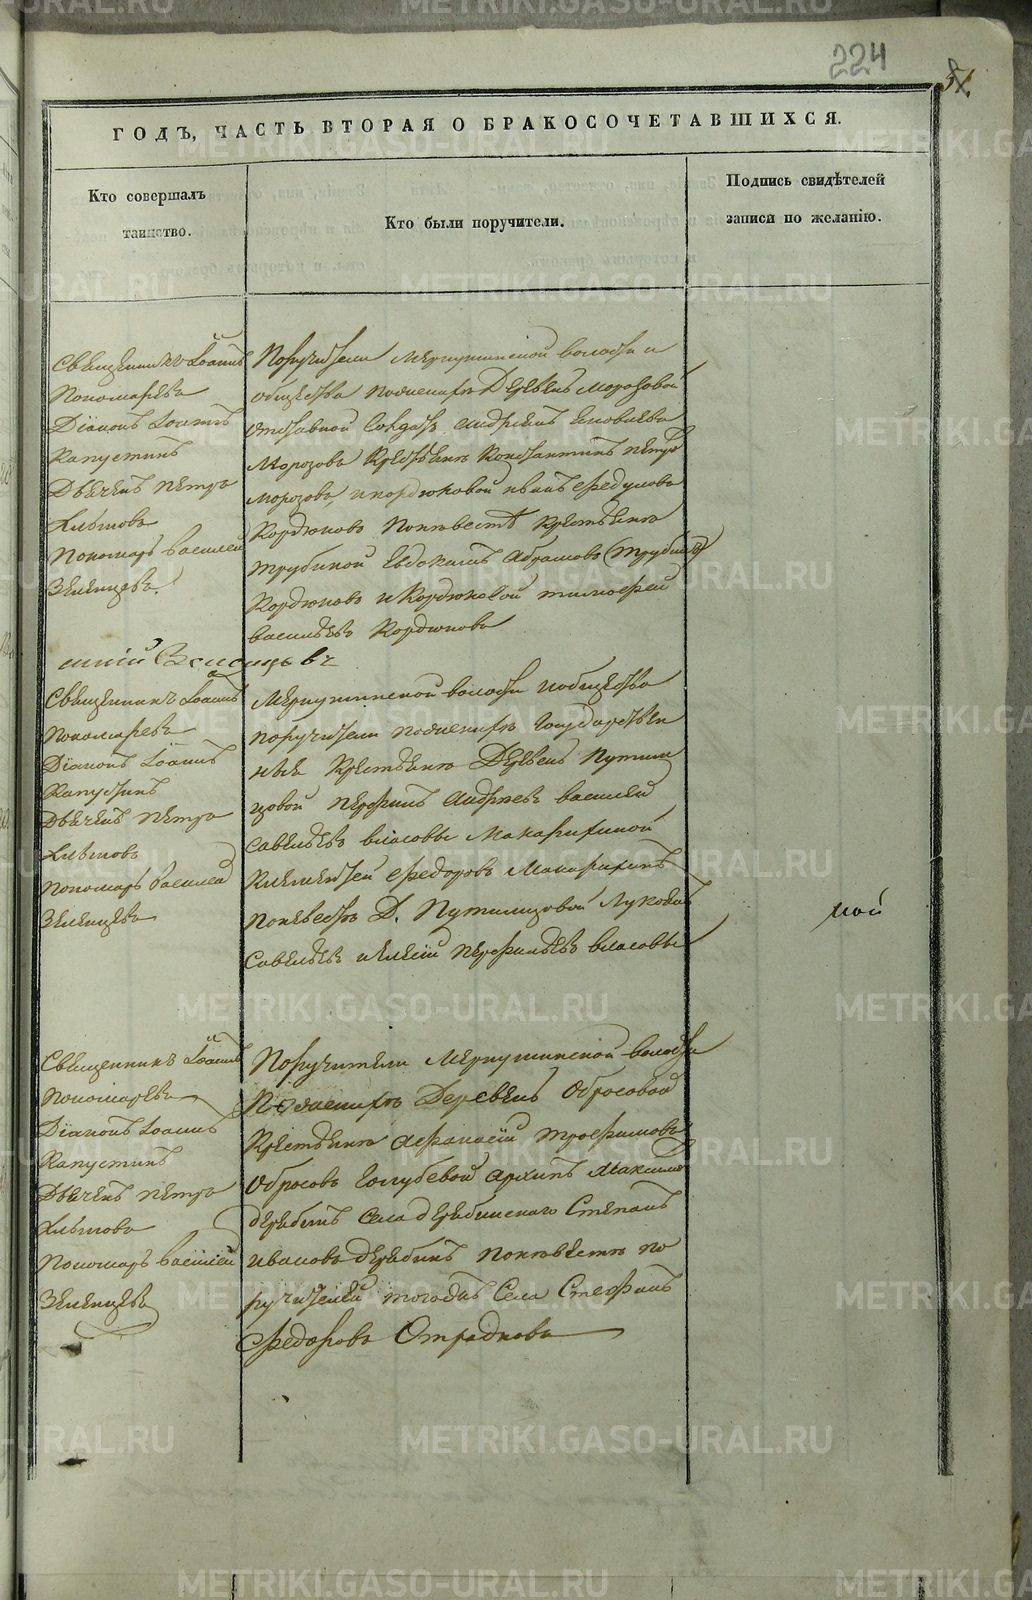 224
51.
ГОДЪ, ЧАСТЬ ВТОРАЯ О БРАКОСОЧЕТАВШИХСЯ.
Кто совершалъ
таинство.
Кто были поручители.
Подпись свидѣтелей
записи по желанію.
Священникъ Іоаннъ
Пономаревъ
Діаконъ Іоаннъ
Капустинъ
Дьячекъ Петръ
Пономарь Василей
Зеленцевъ.
Поручители Меркушинской волости и
общества по женихѣ Деревень Морозовой
отставной солдатъ Андреянъ
Морозовъ Крестьяне Константинъ Петр
Морозовъ, и Кордюковой Иванъ Федуловъ
Кордюковъ По невестѣ крестьяне
Трубиной Евдокимъ Абрамовъ (Трубинъ)
Кордюковъ и Кордюковой Тимофей
Васильевъ Кордюковъ
Священникъ Іоаннъ
Пономаревъ
Діаконъ Іоаннъ
Капустинъ
Дьячекъ Петръ
Пономарь Василей
Зеленцевъ
Меркушинской волости и общества
поручители по женихѣ Государствен
ные крестьяне Деревень Путили
цовой Перфилъ Андреевъ Василей
Савельевъ Власовы Макарихиной
Климентей Федоровъ Макарихинъ
По невестѣ Д. Путилицовой Луковъ
Савельевъ и Перфильевъ Власовы
мой
Священникъ Іоаннъ
Пономаревъ
Діаконъ Іоаннъ
Капустинъ
Дьячекъ Петръ
Пономарь Василей
Зеленцевъ
Поручители Меркушинской волости
По женихѣ Деревень Обросовой
Крестьяне Афанасій Трофимовъ
Обросовъ Голубевой Архипъ Максимов
Дерябинъ Села Дерябинскаго Степанъ
Ивановъ Дерябинъ По невестѣ по
ручителей тогожъ Села Стефанъ
Федоровъ Отрадновъ
METRIKI.GASO-URAL.RU